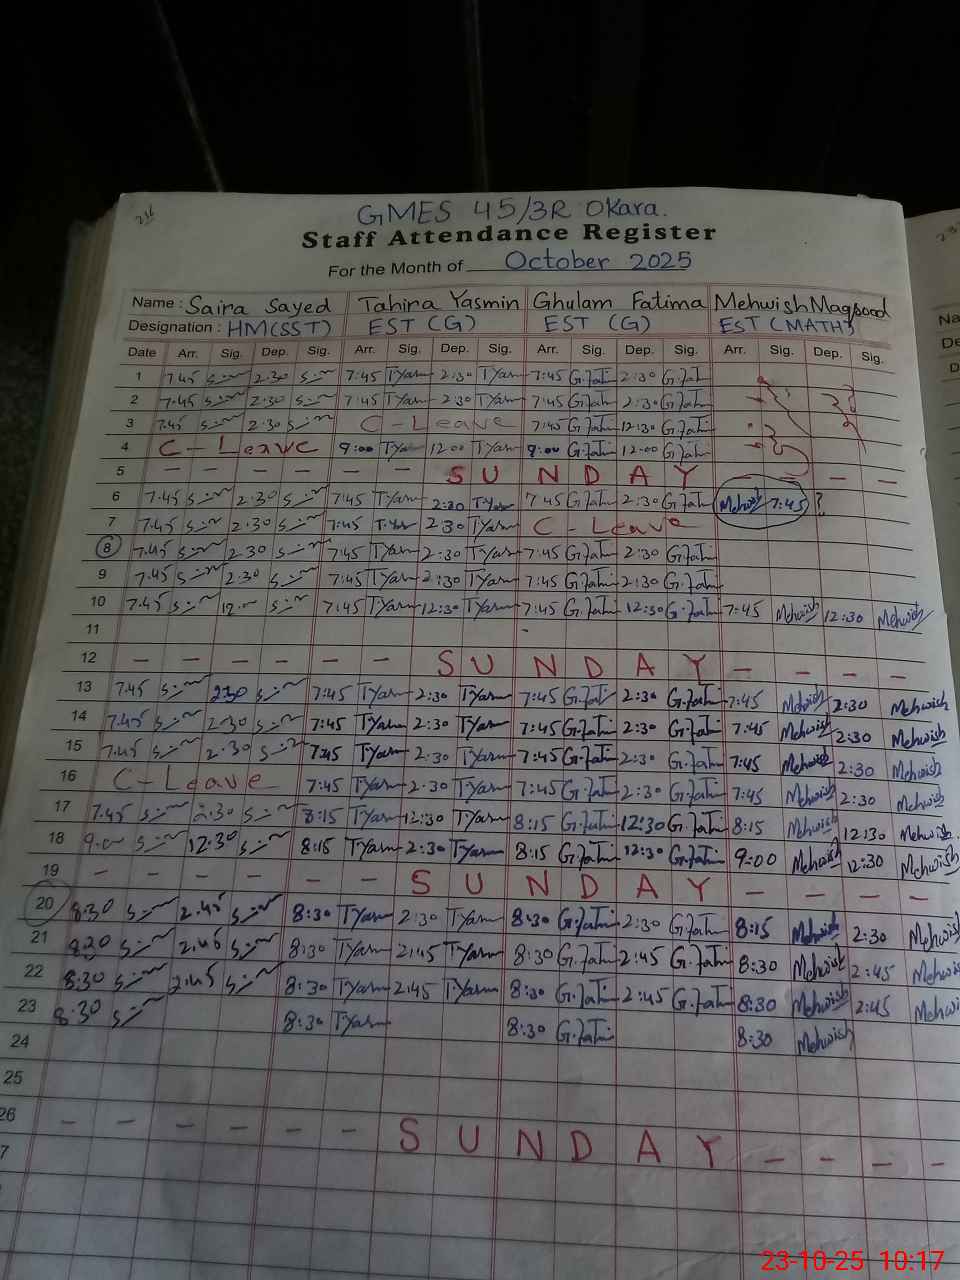 236
GMES 45/3R Okara.
Staff Attendance Register
For the Month of October 2025
Name : Saira Sayed Tahira Yasmin Ghulam Fatima Mehwish Maqsood
Designation : HM(SST) EST (G) EST (G) EST (MATH)
Date Arr. Sig. Dep. Sig. Arr. Sig. Dep. Sig. Arr. Sig. Dep. Sig. Arr. Sig. Dep. Sig.
1 7.45 2.30 7:45 T.Yasm 2:30 T.Yasm 7:45 G.Fati 2:30 G.Fati
2 7.45 2.30 7:45 T.Yasm 2:30 T.Yasm 7:45 G.Fati 2:30 G.Fati
3 7.45 2.30 C-Leave 7:45 G.Fati 12:30 G.Fati
4 C-Leave 9:00 T.Yasm 12:00 T.Yasm 9:00 G.Fati 12:00 G.Fati
5 — — — — — — S U N D A Y — — — —
6 7.45 2.30 7:45 T.Yasm 2:30 T.Yasm 7:45 G.Fati 2:30 G.Fati Mehwish 7:45 ?
7 7.45 2.30 7:45 T.Yasm 2:30 T.Yasm C-Leave
8 7.45 2.30 7:45 T.Yasm 2:30 T.Yasm 7:45 G.Fati 2:30 G.Fati
9 7.45 2.30 7:45 T.Yasm 2:30 T.Yasm 7:45 G.Fati 2:30 G.Fati
10 7.45 7:45 T.Yasm 12:30 T.Yasm 7:45 G.Fati 12:30 G.Fati 7:45 Mehwish 12:30 Mehwish
11
12 — — — — — — S U N D A Y — — — —
13 7.45 2.30 7:45 T.Yasm 2:30 T.Yasm 7:45 G.Fati 2:30 G.Fati 7:45 Mehwish 2:30 Mehwish
14 7.45 2.30 7:45 T.Yasm 2:30 T.Yasm 7:45 G.Fati 2:30 G.Fati 7:45 Mehwish 2:30 Mehwish
15 7.45 2.30 7:45 T.Yasm 2:30 T.Yasm 7:45 G.Fati 2:30 G.Fati 7:45 Mehwish 2:30 Mehwish
16 C-Leave 7:45 T.Yasm 2:30 T.Yasm 7:45 G.Fati 2:30 G.Fati 7:45 Mehwish 2:30 Mehwish
17 7.45 2.30 8:15 T.Yasm 12:30 T.Yasm 8:15 G.Fati 12:30 G.Fati 8:15 Mehwish 12:30 Mehwish
18 9.00 12.30 8:15 T.Yasm 2:30 T.Yasm 8:15 G.Fati 12:30 G.Fati 9:00 Mehwish 12:30 Mehwish
19 — — — — — — S U N D A Y — — — —
20 8:30 2.45 8:30 T.Yasm 2:30 T.Yasm 8:30 G.Fati 2:30 G.Fati 8:15 Mehwish 2:30 Mehwish
21 8:30 2.45 8:30 T.Yasm 2:45 T.Yasm 8:30 G.Fati 2:45 G.Fati 8:30 Mehwish 2:45 Mehwish
22 8:30 2.45 8:30 T.Yasm 2:45 T.Yasm 8:30 G.Fati 2:45 G.Fati 8:30 Mehwish 2:45 Mehwi
23 8:30 8:30 T.Yasm 8:30 G.Fati 8:30 Mehwish
24
25
26 — — — — — — S U N D A Y — — — —
7
23-10-25 10:17